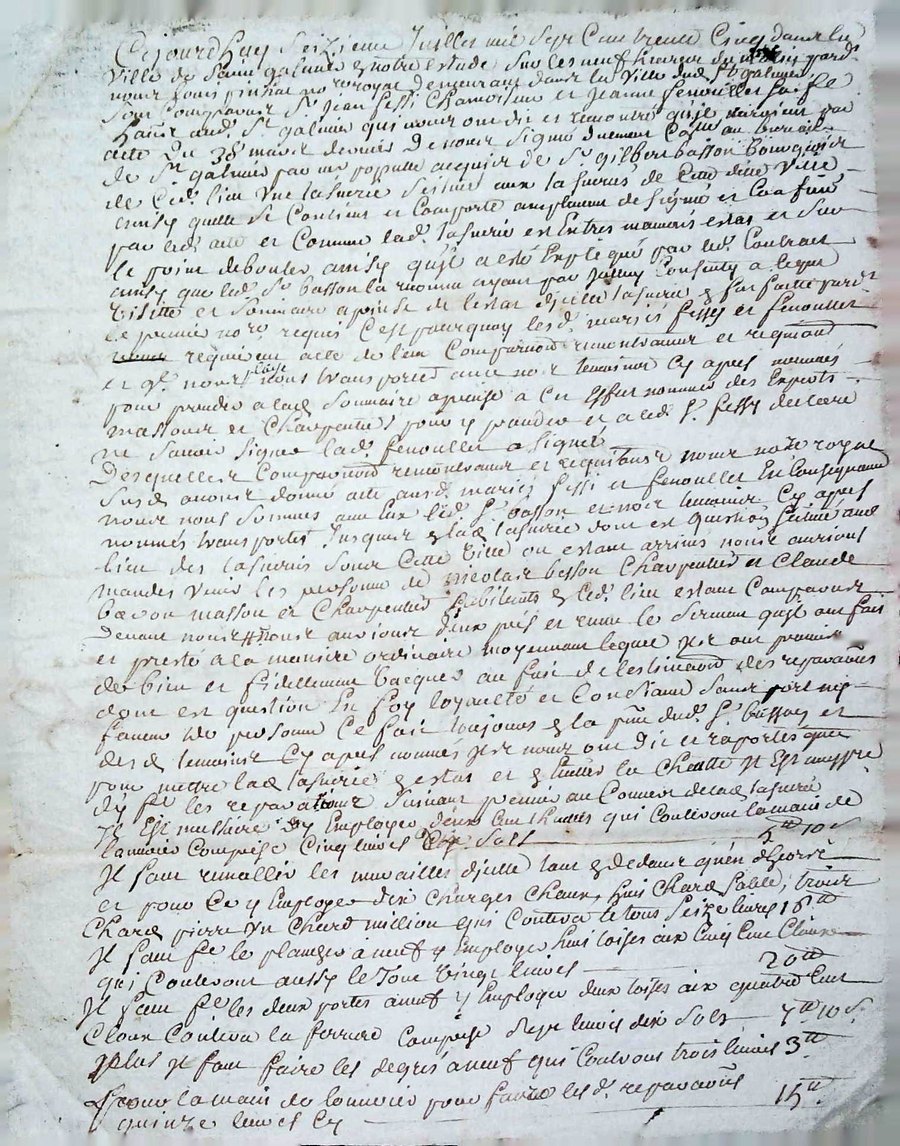 Cejourdhuy Seizieme Juillet mil Sept Cent trente Cinq dans la
Ville de Saint galmier & notre estude Sur les neuf heures du matin pard.
nous Louis no.re royal demeurant dans la Ville dud. St galmier
Sont Comparus Sr. Jean fessi Chamoiseur et Jeanne fenouillet Sa fe
aud. St galmier qui nous ont dit et remontré qu'ils auroient par
acte du mars dernier de nous Signé duement Con.lé au bureau
de St galmier par acquier de Sr gilbert basson bourgeois
de Ced. lieu Une tasnerie Scituée aux tasneries de Cette ditte Ville
ainsy quelle Se Contient et Comporte amplement designé et Confiné
par led. acte et Comme lad. tasnerie est En tres mauvais estat et Sur
le point de ainsy qu'il a esté Expliqué par led. Contrat
ainsy que led. Sr basson la reconnu ayant par Consenty a leque
Visitte et Sommaire aprise de lestat d'icelle tasnerie & fut faitte pard.t
le premier no.re requis C'est pourquoy lesd. mariés fessy et fenouillet
requierent acte de leur Comparution remontrance et requisition
et q. nous plaise nous transporter avec nos temoins Cy apres nommés
pour prendre a lad. Sommaire aprise a Cet Effet nommer des Experts
massons et Charpentiers pour y prendre et a led. Sr. fessy declaré
ne Sçavoir Signer lad. fenouillet a Signé
Desquelles Comparution remontrance et requisition nous no.re royal
Susd. avons donné acte ausd. mariés fessi et fenouillet En Consequence
nous nous Sommes avec Eux led. Sr. basson et nos temoins Cy apres
nommés transportés Jusques & lad. tasnerie dont est question Scituée aud.
lieu des tasneries Sous Cette Ville ou estant arrivés nous aurions
mandés Venir les personne de nicolas besson Charpentier et Claude
masson et Charpentier habitants & led. lieu estant Comparus
devant nous nous aurions deux pris et receu le Serment quils ont fait
et presté a la maniere ordinaire moyennant lequel Ils ont promis
de bien et fidellement Vacquer au fait de lestimation des reparations
dont est question En foy loyauté et Conscience Sans port ny
faveur de personne Ce fait toujours & la p.nce dud. Sr. basson et
desd. temoins Cy apres nommés Ils nous ont dit et raportés que
pour mettre lad. tasnerie & estat et & Eviter la Cheutte Il Est
dy fe. les reparations Suivant premier au Couvert de lad. tasnerie
Il Est necessaire dy Employer deux Cent thuilles qui Couteront la main de
lannier Comprise Cinq livres dix Sols 5tt 10 s
Il faut les murailles d'icelle tant & dedans qu'en dehors
et pour Ce y Employer dix Charges Chaux, huit Chard Sable, trois
Chard pierre Un Chard million qui Coutera le tout Seize livres 16tt
Il faut fe. le plancher à neuf y Employer huit toises aix Cinq Cent Cloux
qui Couteront aussy le Tout Vingt livres 20tt
Il faut fe. les deux portes aneuf y Employer deux toises aix quatre Cent
Cloux Coutera la ferrure Comprise Sept livres dix Sols 7tt 10 s.
Plus Il faut faire les degrés aneuf qui Coutront trois livres 3tt.
pour la main de louvrier pour faire lesd. reparations
quinze livres Cy 15tt.